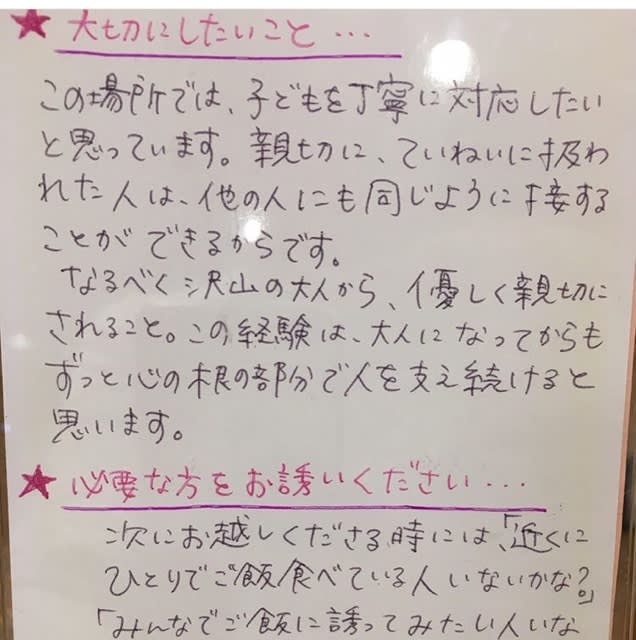 ★ 大切にしたいこと…
この場所では、子どもを丁寧に対応したい
と思っています。親切に、ていねいに扱わ
れた人は、他の人にも同じように接する
ことができるからです。
なるべく沢山の大人から、優しく親切に
されること。この経験は、大人になってからも
ずっと心の根の部分で人を支え続けると
思います。
★ 必要な方をお誘いください...
次にお越しくださる時には、「近くに
ひとりでご飯食べている人いないかな?」
「みんなでご飯に誘ってみたい人いな